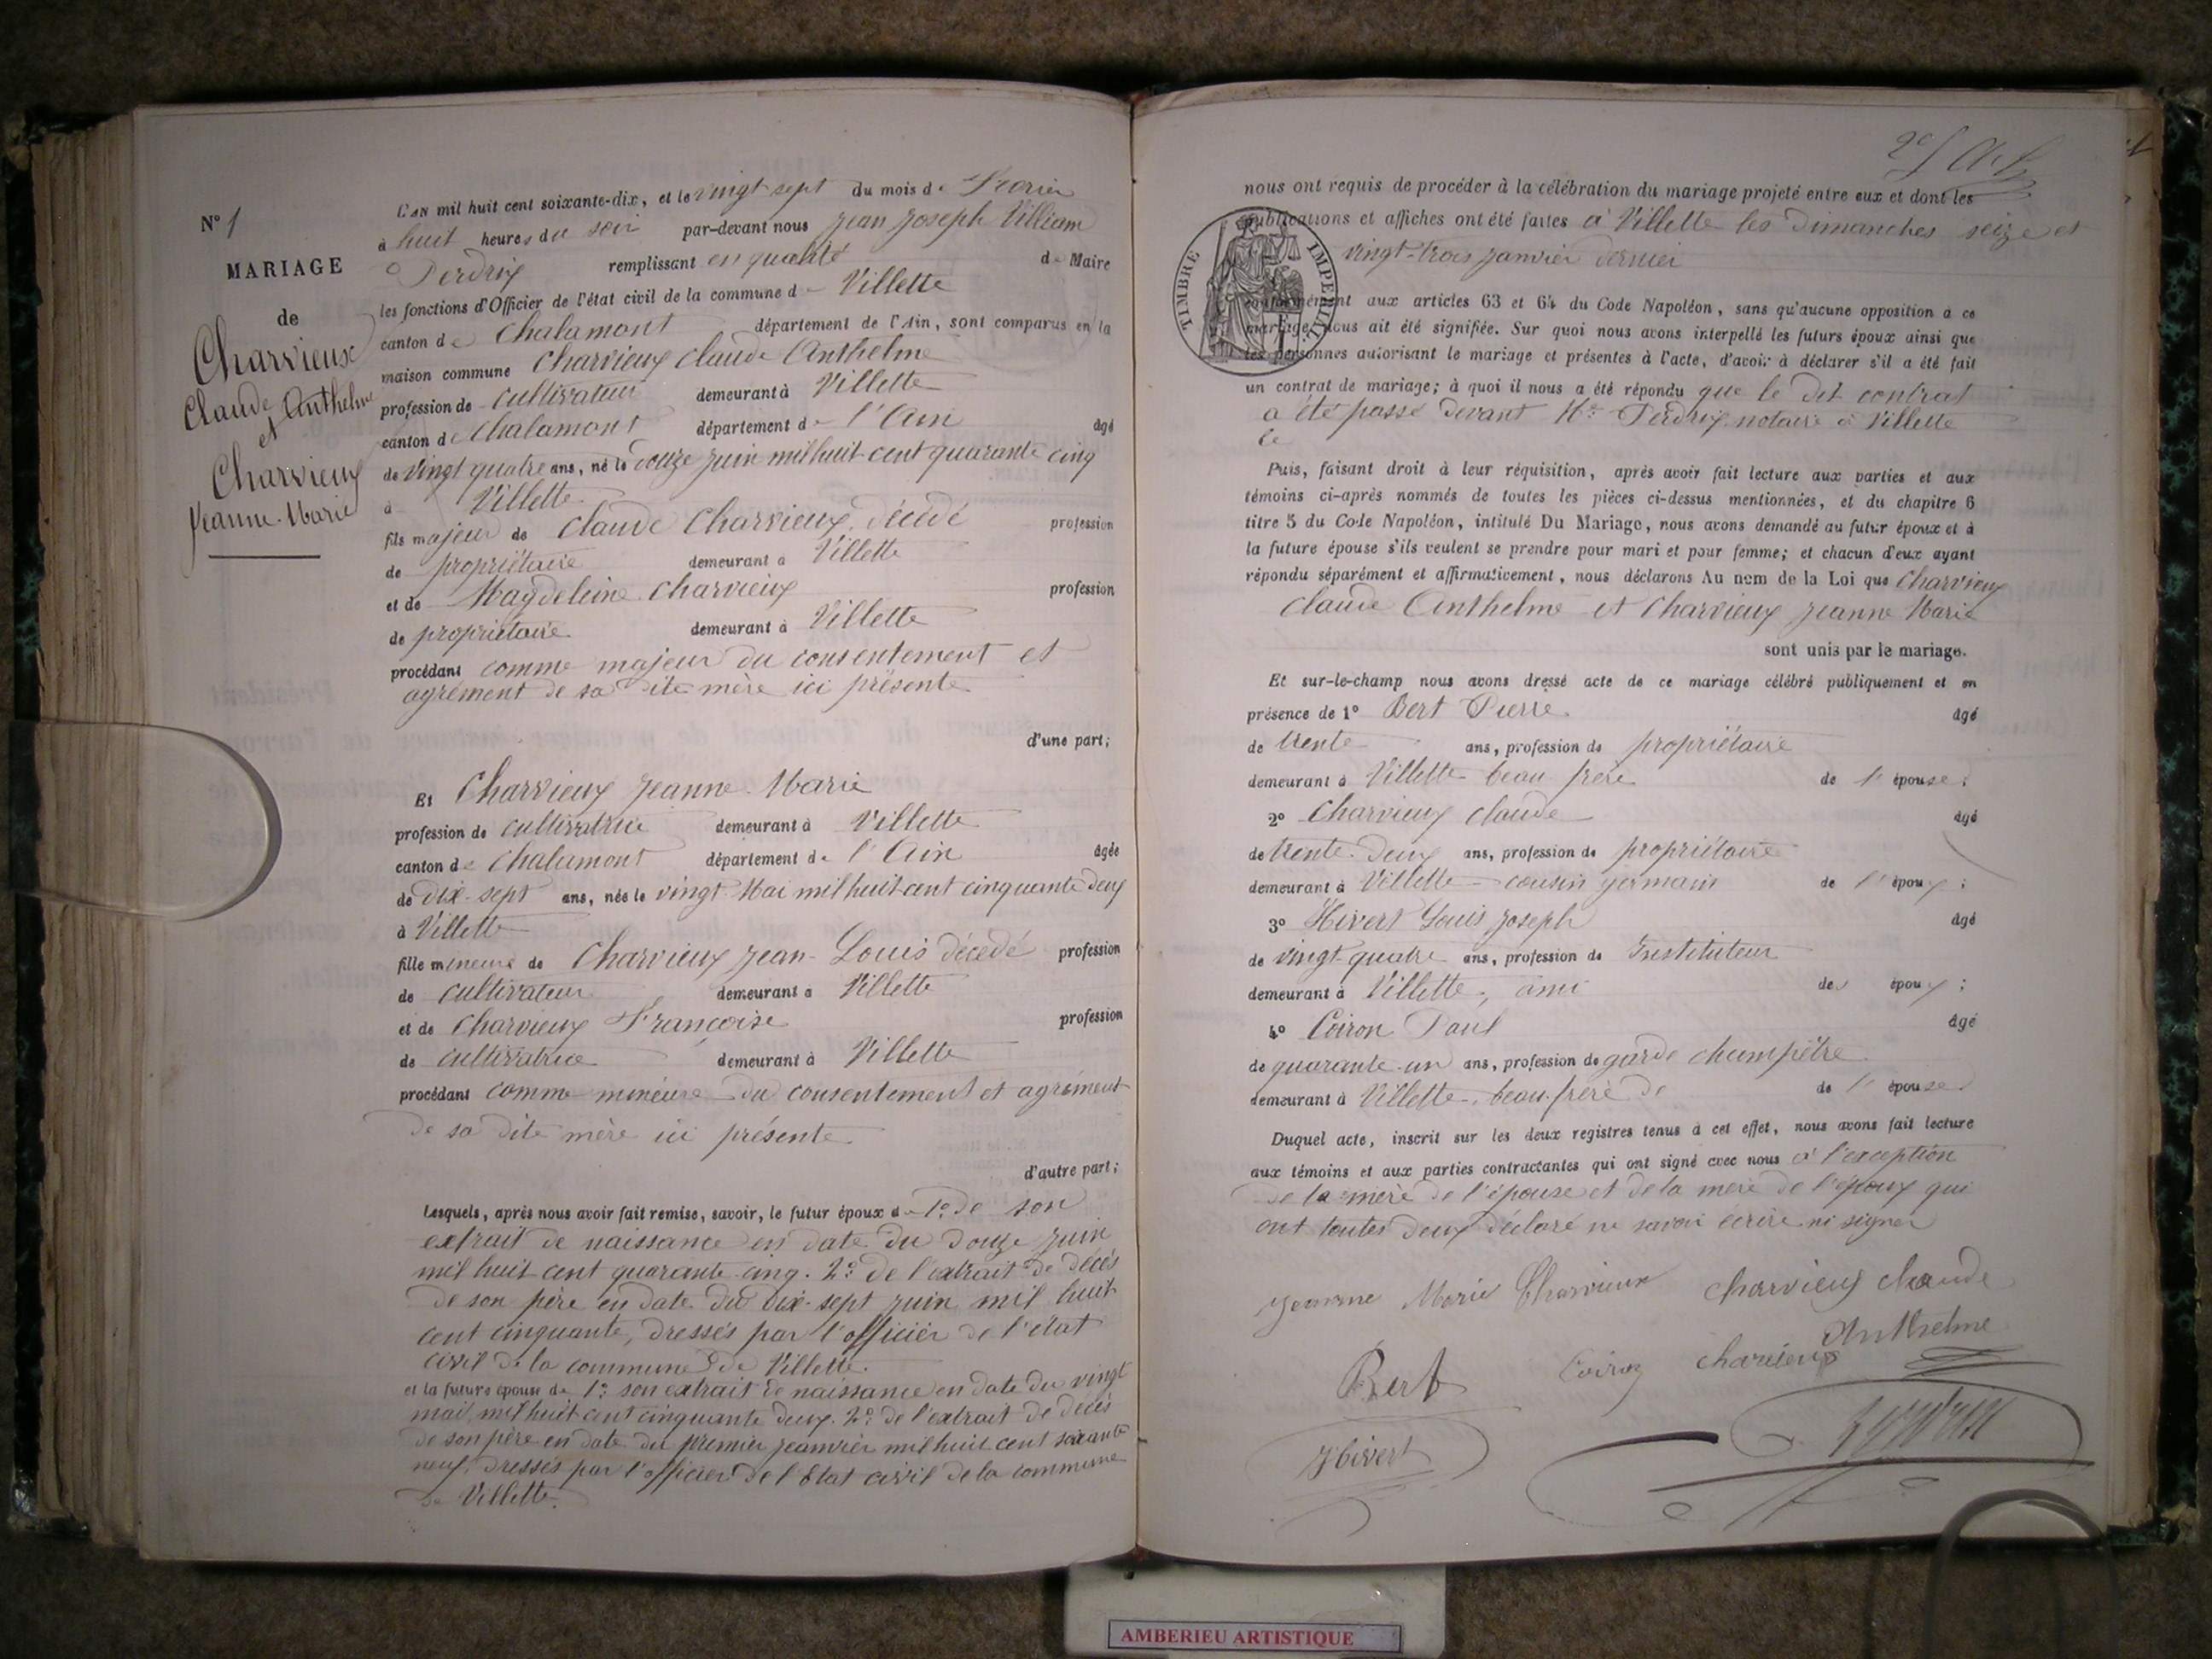 N° 1
MARIAGE
de
Charvieux
Claude Anthelme
et
Charvieux
Jeanne-Marie
L'AN mil huit cent soixante-dix, et le vingt-sept du mois de Février
à huit heures du soir par-devant nous Jean Joseph Villiam
Perdrix remplissant en qualité de Maire
les fonctions d'Officier de l'état civil de la commune de Villette
canton de Chalamont département de l'Ain, sont comparus en la
maison commune Charvieux Claude Anthelme
profession de cultivateur demeurant à Villette
canton de Chalamont département de l'Ain âgé
de vingt quatre ans, né le douze juin mil huit cent quarante cinq
à Villette
fils majeur de Claude Charvieux, décédé profession
de propriétaire demeurant à Villette
et de Magdeleine Charvieux profession
de propriétaire demeurant à Villette
procédant comme majeur du consentement et
agrément de sa dite mère ici présente
d'une part;
Et Charvieux Jeanne-Marie
profession de cultivatrice demeurant à Villette
canton de Chalamont département de l'Ain âgée
de dix-sept ans, née le vingt Mai mil huit cent cinquante deux
à Villette
fille mineure de Charvieux Jean-Louis décédé profession
de cultivateur demeurant à Villette
et de Charvieux Françoise profession
de cultivatrice demeurant à Villette
procédant comme mineure du consentement et agrément
de sa dite mère ici présente
d'autre part;
Lesquels, après nous avoir fait remise, savoir, le futur époux de 1° de son
extrait de naissance en date du douze juin
mil huit cent quarante-cinq. 2° de l'extrait de décès
de son père en date du dix-sept juin mil huit
cent cinquante, dressés par l'officier de l'état
civil de la commune de Villette.
et la future épouse de 1° son extrait de naissance en date du vingt
mai mil huit cent cinquante deux. 2° de l'extrait de décès
de son père en date du premier jeanvier mil huit cent soixante
neuf, dressés par l'officier de l'Etat civil de la commune
de Villette.
nous ont requis de procéder à la célébration du mariage projeté entre eux et dont les
publications et affiches ont été faites à Villette les Dimanches seize et
vingt-trois janvier dernier
TIMBRE IMPERIAL
conformément aux articles 63 et 64 du Code Napoléon, sans qu'aucune opposition à ce
mariage nous ait été signifiée. Sur quoi nous avons interpellé les futurs époux ainsi que
les personnes autorisant le mariage et présentes à l'acte, d'avoir à déclarer s'il a été fait
un contrat de mariage; à quoi il nous a été répondu que le dit contrat
a été passé devant Me Perdrix notaire à Villette
le
Puis, faisant droit à leur réquisition, après avoir fait lecture aux parties et aux
témoins ci-après nommés de toutes les pièces ci-dessus mentionnées, et du chapitre 6
titre 5 du Code Napoléon, intitulé Du Mariage, nous avons demandé au futur époux et à
la future épouse s'ils veulent se prendre pour mari et pour femme; et chacun d'eux ayant
répondu séparément et affirmativement, nous déclarons Au nom de la Loi que Charvieux
Claude Anthelme et Charvieux Jeanne Marie
sont unis par le mariage.
Et sur-le-champ nous avons dressé acte de ce mariage célébré publiquement et en
présence de 1° Bert Pierre âgé
de trente ans, profession de propriétaire
demeurant à Villette beau frère de l'épouse;
2° Charvieux Claude âgé
de trente-deux ans, profession de propriétaire
demeurant à Villette cousin germain de l'époux;
3° Hivert Louis Joseph âgé
de vingt-quatre ans, profession de Instituteur
demeurant à Villette, ami des époux;
4° Coiron Paul âgé
de quarante-un ans, profession de garde champêtre
demeurant à Villette, beau-frère de de l'épouse
Duquel acte, inscrit sur les deux registres tenus à cet effet, nous avons fait lecture
aux témoins et aux parties contractantes qui ont signé avec nous à l'exception
de la mère de l'épouse et de la mère de l'époux qui
ont toutes deux déclaré ne savoir écrire ni signer
Jeanne Marie Charvieux Charvieux Claude
Anthelme
Bert Coiron Charvieux
Hivert
AMBERIEU ARTISTIQUE